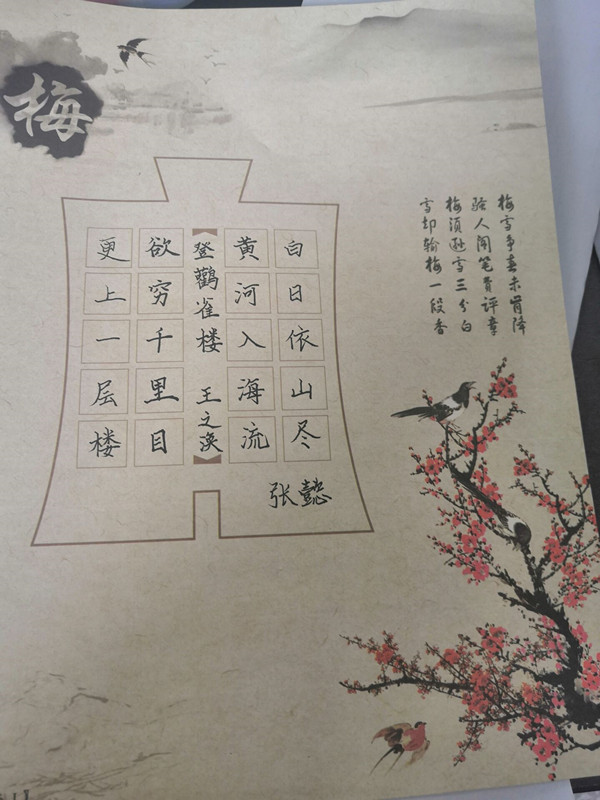 梅
梅雪争春未肯降
骚人阁笔费评章
梅须逊雪三分白
雪却输梅一段香
白日依山尽
黄河入海流
登鹳雀楼 王之涣
欲穷千里目
更上一层楼
张懿